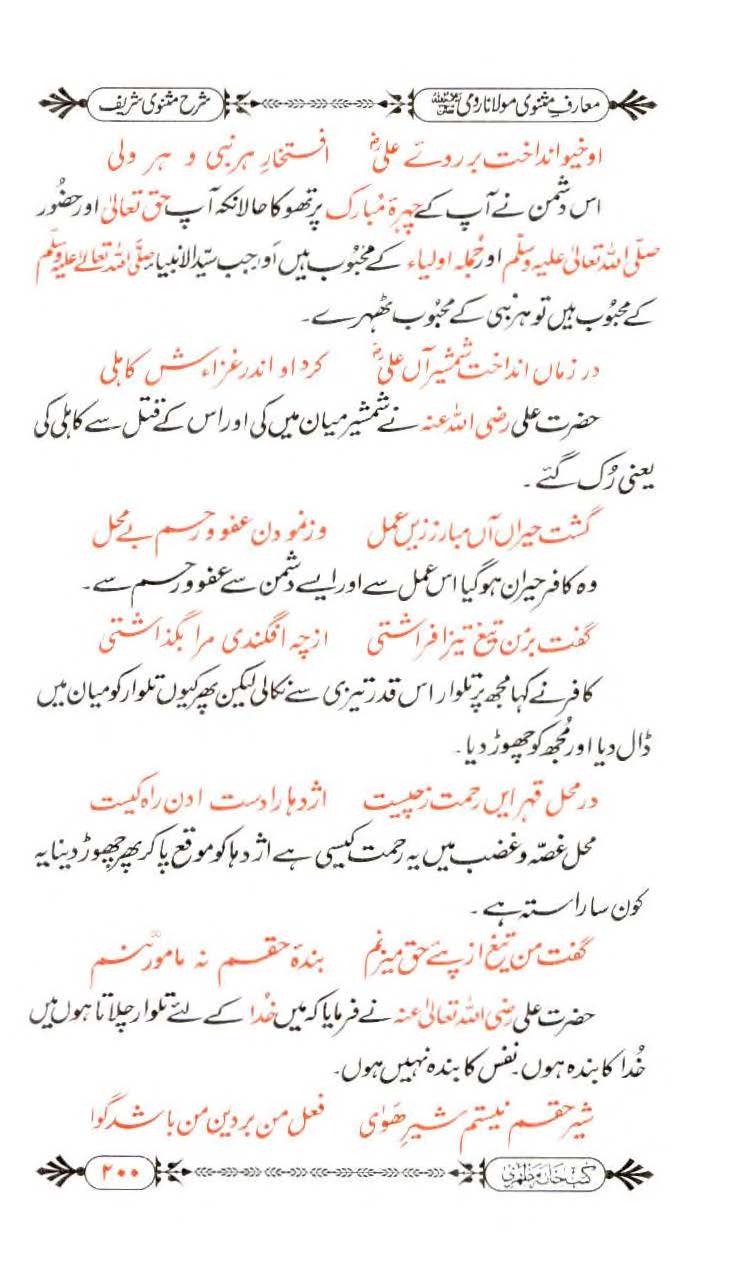 معارفِ مثنوی مولانا رومیؒ شرح مثنوی شریف
او خیو انداخت بر روئے علیؓ افتخارِ ہر نبی و ہر ولی
اس دشمن نے آپ کے چہرۂ مُبارک پر تھوکا حالانکہ آپ حق تعالیٰ اور حضُور
صلّی اللہ تعالیٰ علیہ وسلّم اور جُملہ اولیاء کے محبُوب ہیں اَور جب سیّد الانبیاء صلّی اللہ تعالےٰ علیہ وسلّم
کے محبُوب ہیں تو ہر نبی کے محبُوب ٹھہرے۔
در زماں انداخت شمشیر آں علیؓ کرد او اندر غزاءش کاہلی
حضرت علی رضی اللہ عنہ نے شمشیر میان میں کی اور اس کے قتل سے کاہلی کی
یعنی رُک گئے۔
گشت حیراں آں مبارز زیں عمل وز نمودن عفو و رحم بے محل
وہ کافر حیران ہوگیا اس عمل سے اور ایسے دشمن سے عفو و رحم سے۔
گفت بر من تیغ تیز افراشتی از چہ افگندی مرا بگذاشتی
کافر نے کہا مجھ پر تلوار اس قدر تیزی سے نکالی لیکن پھر کیوں تلوار کو میان میں
ڈال دیا اور مُجھ کو چھوڑ دیا۔
در محل قہر ایں رحمت ز چیست اژدہا را دست دادن راہ کیست
محل غصّہ و غضب میں یہ رحمت کیسی ہے اژدہا کو موقع پا کر پھر چھوڑ دینا یہ
کون سا راستہ ہے۔
گفت من تیغ از پئے حق میزنم بندۂ حقم نہ مامور تنم
حضرت علی رضی اللہ تعالیٰ عنہ نے فرمایا کہ میں خُدا کے لئے تلوار چلاتا ہوں میں
خُدا کا بندہ ہوں۔ نفس کا بندہ نہیں ہوں۔
شیرِ حقم نیستم شیرِ ھَوٰی فعل من بر دین من باشد گوا
کتب خانہ مظہری ۲۰۰